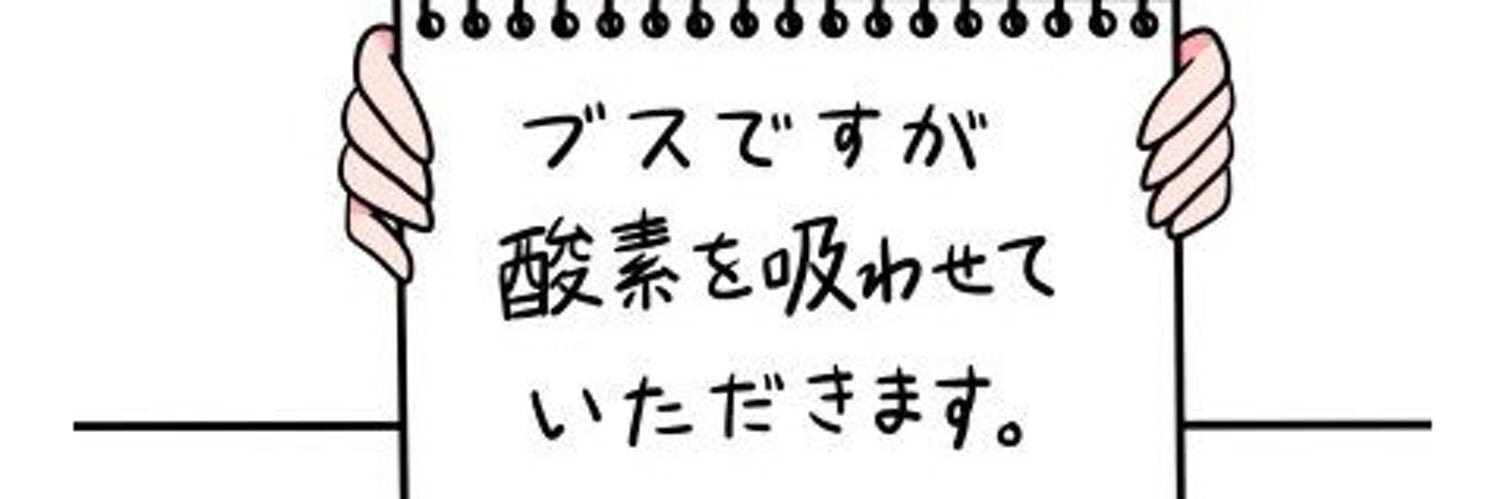 ブスですが
酸素を吸わせて
いただきます。